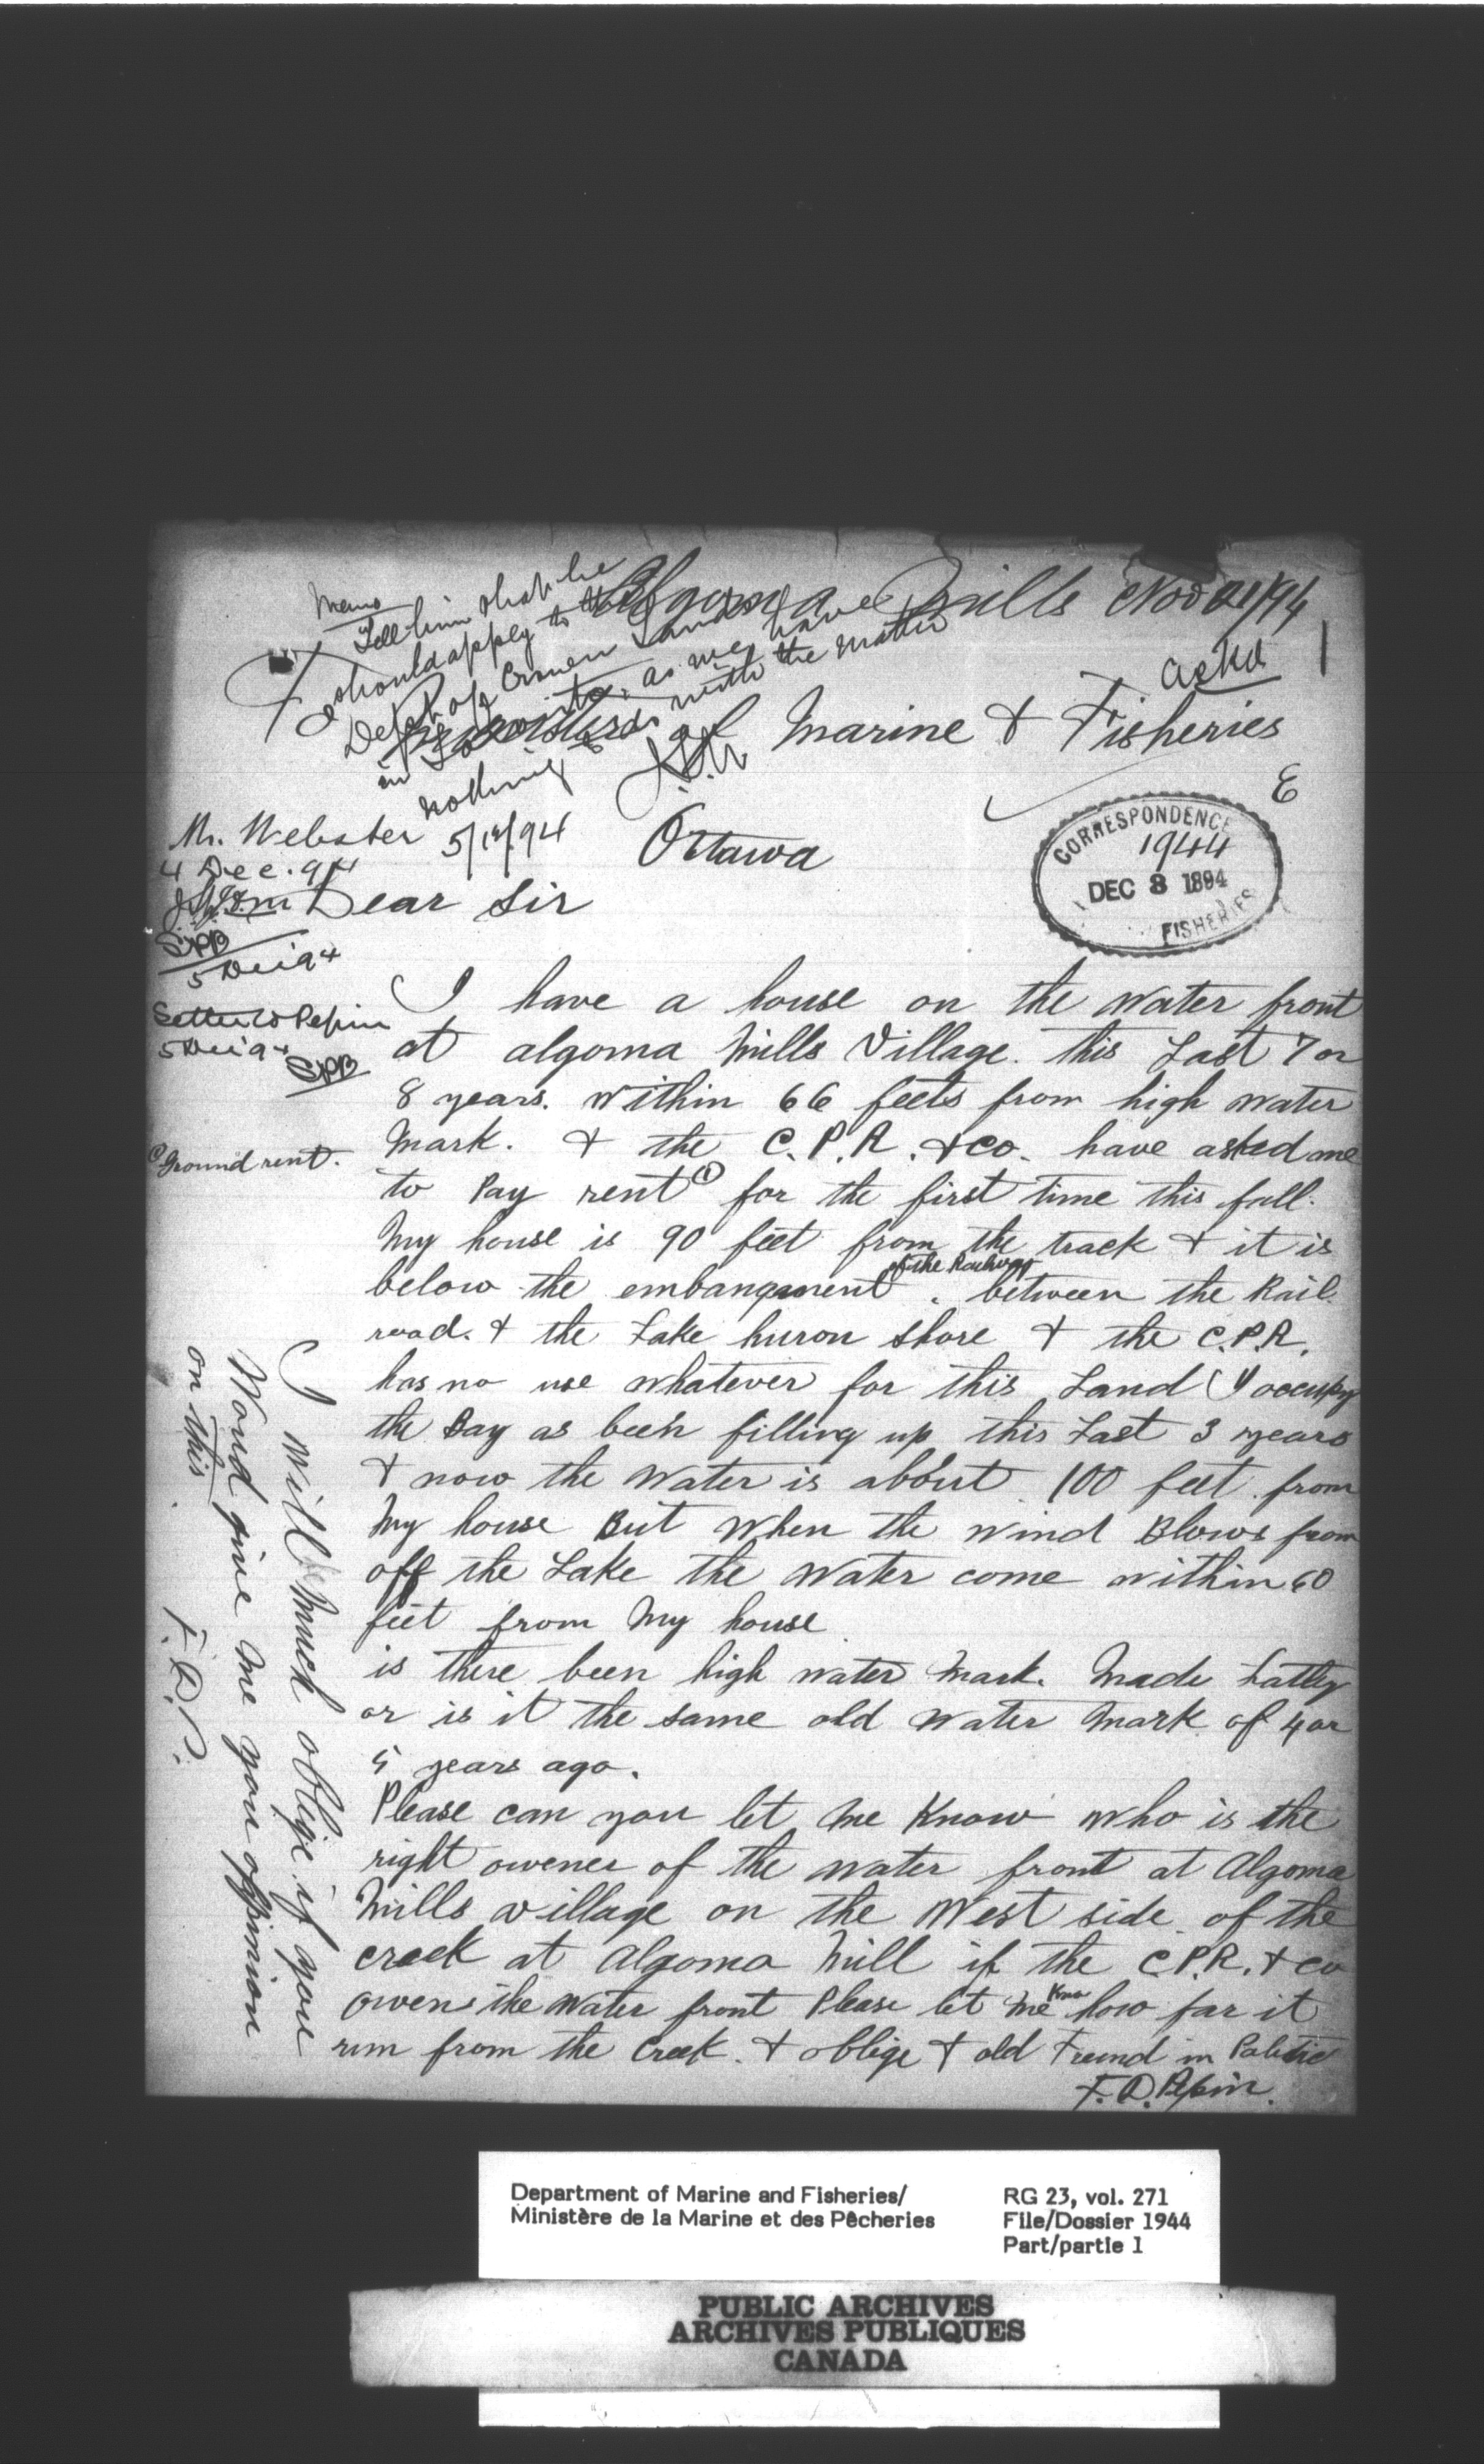 Algoma Mills Nov 21/94
Memo
Tell him that he
should apply to the
Dept of Crown Lands
in Toronto, as we have
nothing to do with the matter
5/12/94
ackd
1
To
Minister of Marine & Fisheries
E
Ottawa
CORRESPONDENCE
1944
DEC 8 1894
FISHERIES
Mr. Webster
4 Dec. 94
SPB
5 Dec 94
Letter to Pepin
5 Dec 94
SPB
Dear Sir
I have a house on the water front
at algoma Mills Village. this Last 7 or
8 years. within 66 feets from high water
Mark. & the C.P.R. & Co. have asked me
to Pay rent (1) for the first time this fall.
(1) Ground rent.
My house is 90 feet from the track & it is
below the embangment of the Railway. between the Rail
road. & the Lake huron shore & the C.P.R.
has no use whatever for this Land I occupy
the Bay as been filling up this Last 3 years
& now the water is about 100 feet from
My house But when the wind Blows from
off the Lake the water come within 60
feet from My house
is there been high water Mark. Made Latly
or is it the same old water Mark of 4 or
5 years ago.
Please can you let Me Know who is the
right owener of the water front at Algoma
Mills village on the West side of the
creek at Algoma Mill if the C.P.R. & Co
owens the water front Please let Me Know how far it
run from the Creek. & oblige & old Freind in Politic
F. D. Pepin.
I will Much oblige if you
Would give Me your oppinion
on this
F. D. P.
Department of Marine and Fisheries/
Ministère de la Marine et des Pêcheries
RG 23, vol. 271
File/Dossier 1944
Part/partie 1
PUBLIC ARCHIVES
ARCHIVES PUBLIQUES
CANADA